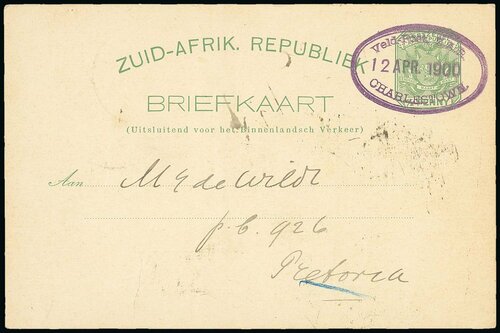 ZUID-AFRIK. REPUBLIEK
Veld-Post Z.A.R.
12 APR. 1900
CHARLESTOWN.
BRIEFKAART
(Uitsluitend voor het Binnenlandsch Verkeer)
Aan M E de Wildt
p.b. 926
Pretoria